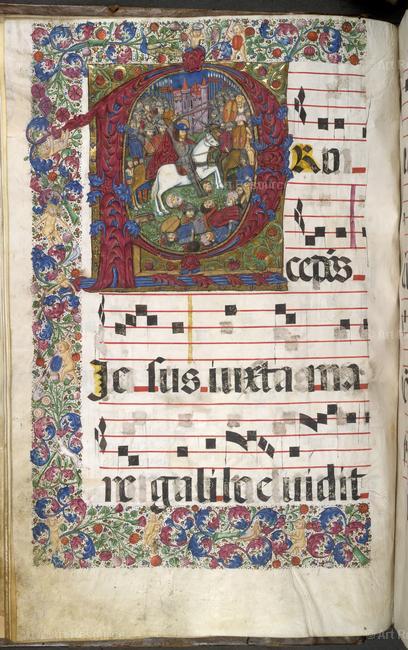 PRO
cedēs
Ie sus iuxta ma
re galilee uidit